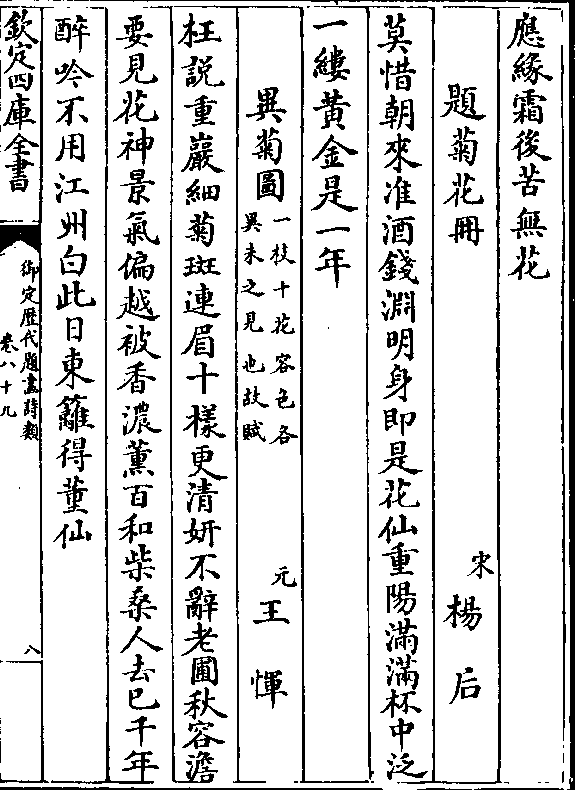 應緣霜後苦無花
題菊花冊
宋 楊后
莫惜朝來准酒錢淵明身即是花仙重陽滿滿杯中泛
一縷黃金是一年
異菊圖
一枝十花容色各
異未之見也故賦
元 王惲
枉説重巖細菊斑連眉十樣更清妍不辭老圃秋容澹
要見花神景氣偏越被香濃薰百和柴桑人去已千年
醉吟不用江州白此日東籬得董仙
欽定四庫全書
御定歷代題畫詩類
卷八十九
八